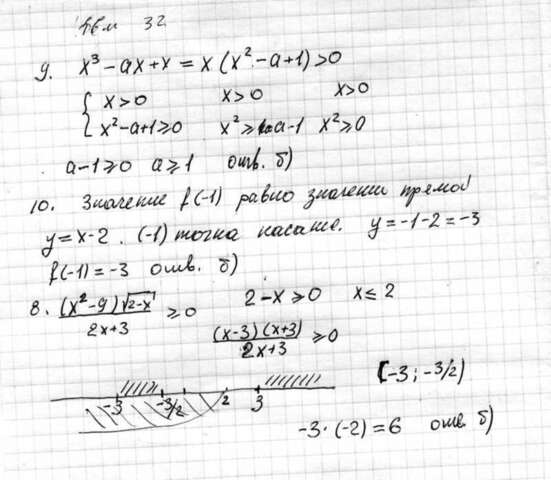 32
9. x³ - ax + x = x (x² - a + 1) > 0
{ x > 0   x > 0   x > 0
x² - a + 1 ≥ 0   x² ≥ a - 1   x² ≥ 0
a - 1 ≥ 0   a ≥ 1   отв. б)
10. Значение f(-1) равно значении прямой
y = x - 2. (-1) точка касание. y = -1 - 2 = -3
f(-1) = -3   отв. б)
8. (x² - 9) √2-x / 2x + 3 ≥ 0   2 - x ≥ 0   x ≤ 2
(x - 3) (x + 3) / 2x + 3 ≥ 0
[-3; -3/2)
-3   -3/2   2   3
-3 · (-2) = 6   отв. б)